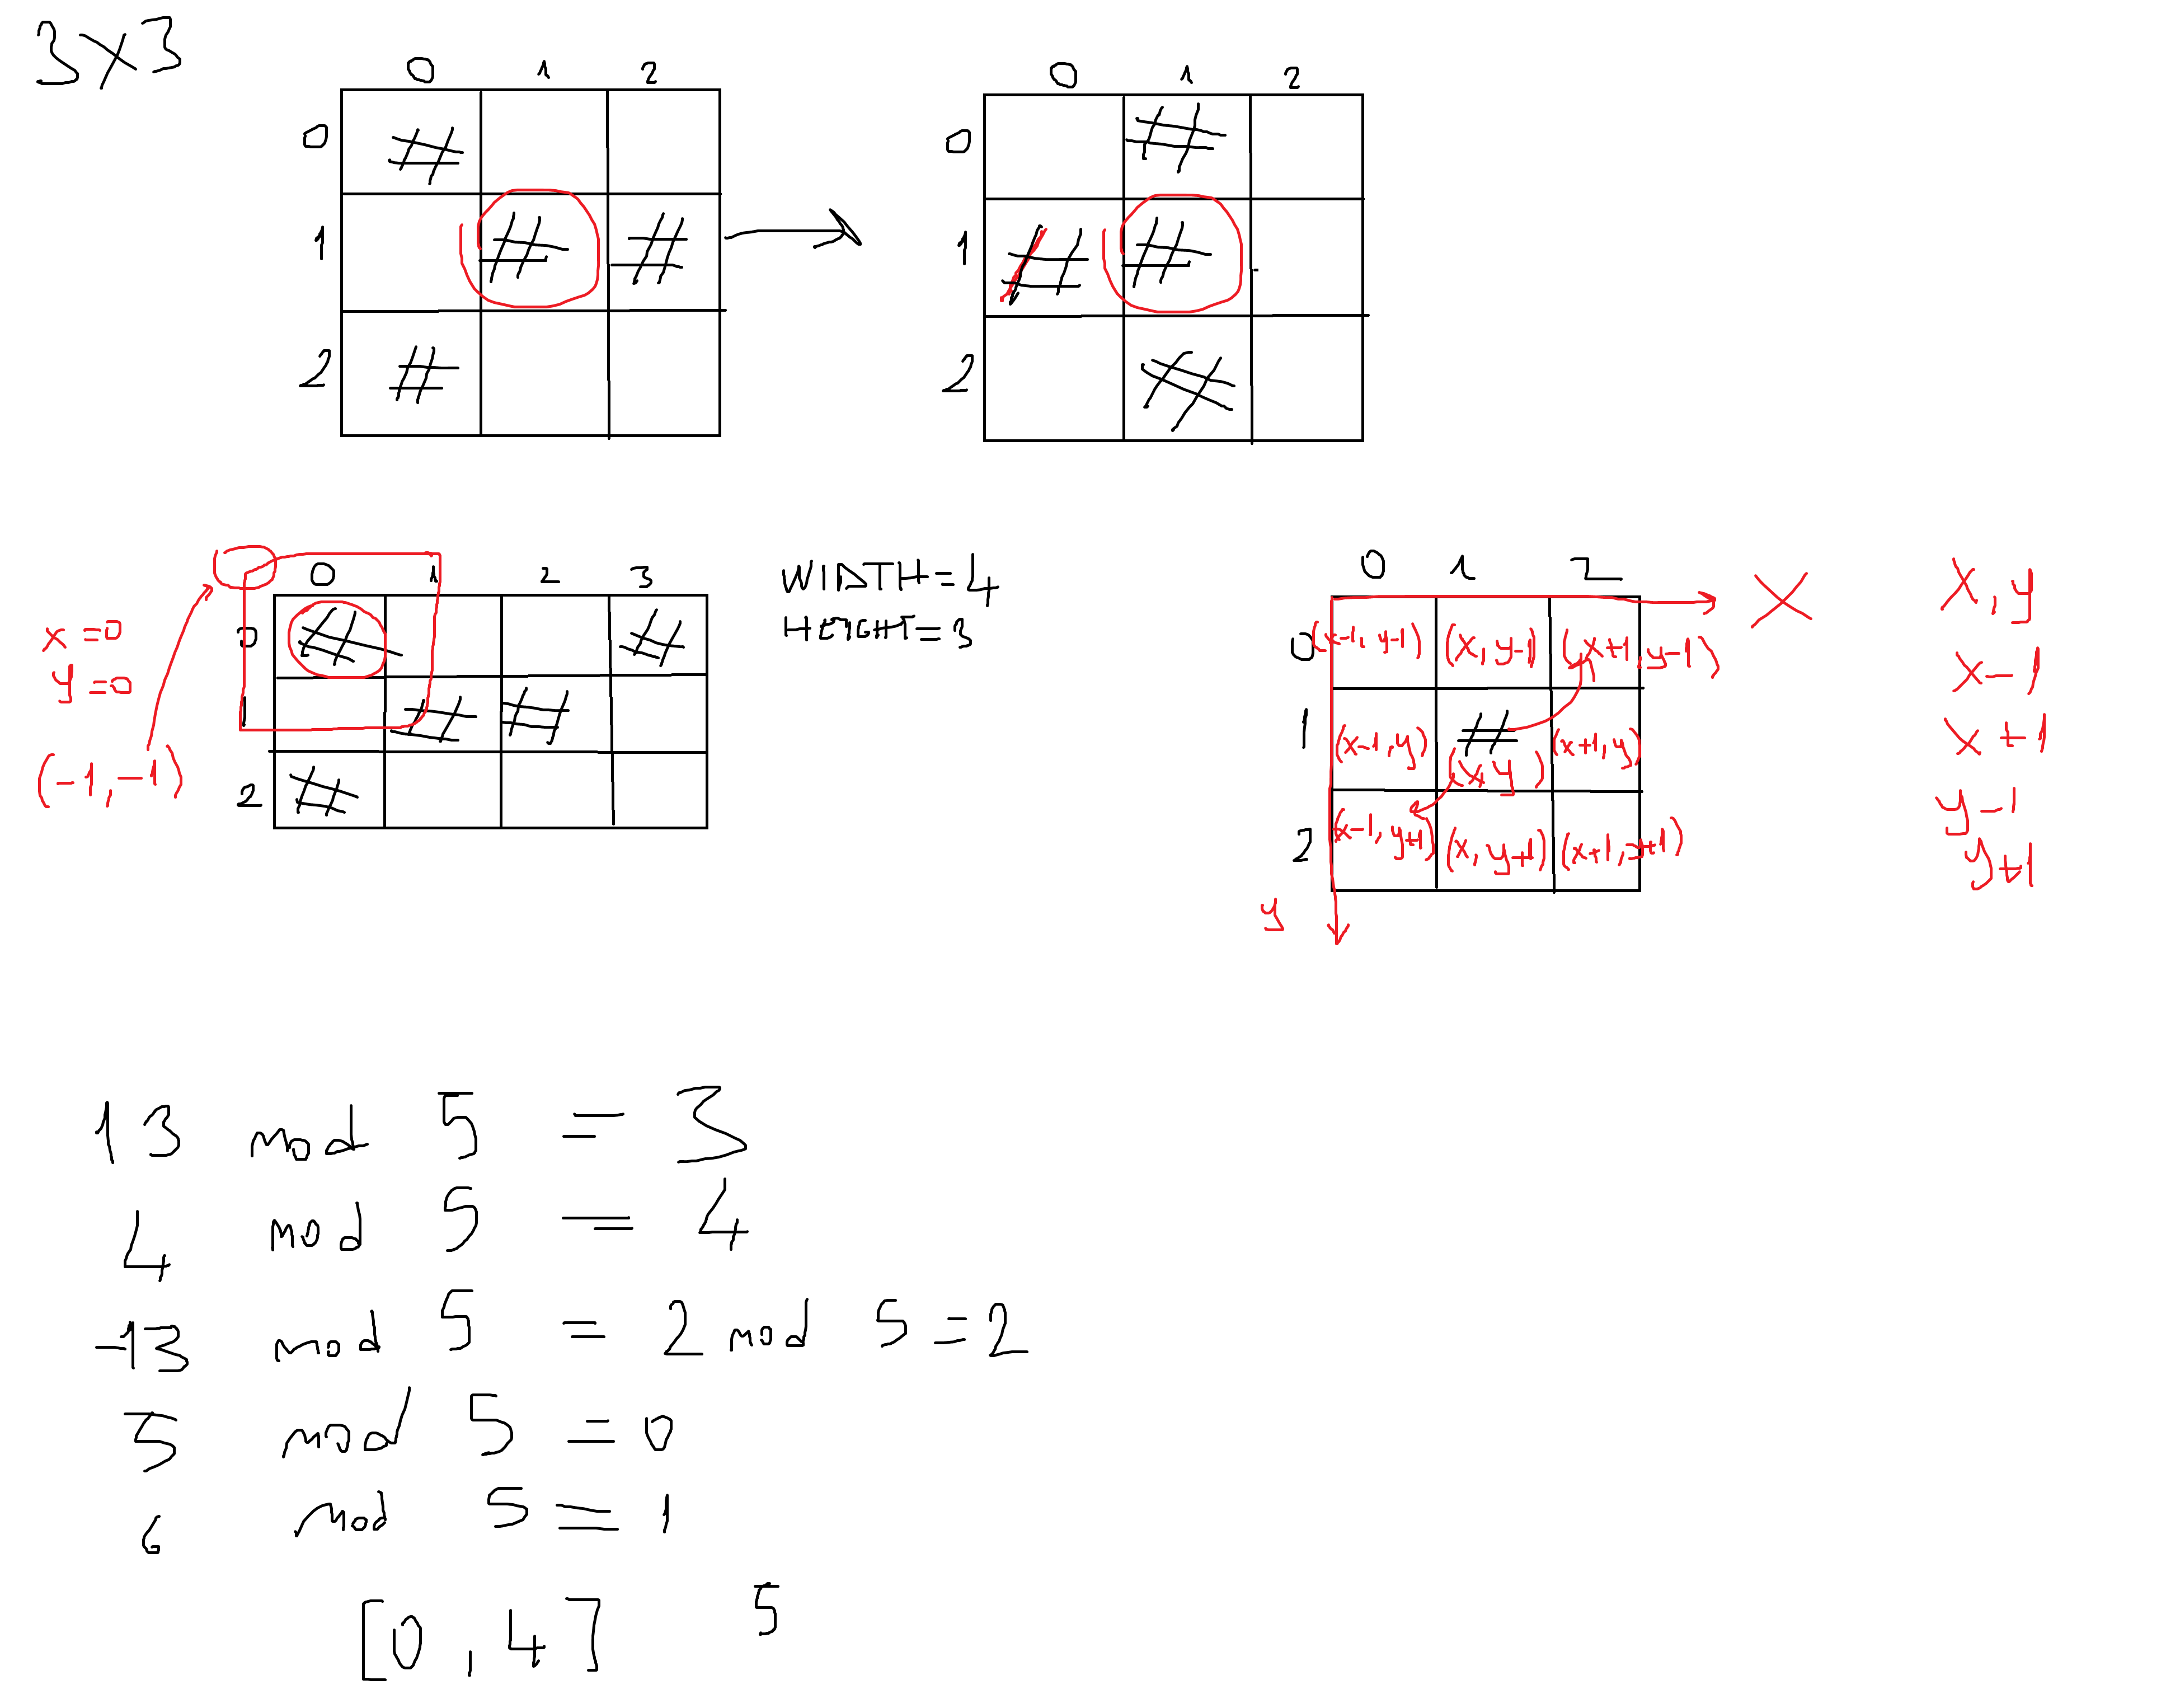 3x3
0 1 2
0 #
1 # #
2 #
0 1 2
0 #
1 # #
2 #
0 1 2 3
0 # #
1 # #
2 #
x=0
y=0
(-1,-1)
WIDTH=4
HEIGHT=3
0 1 2
X
0 (x-1, y-1) (x, y-1) (x+1, y-1)
1 (x-1, y) # (x+1, y)
(x,y)
2 (x-1, y+1) (x, y+1) (x+1, y+1)
y
x, y
x-1
x+1
y-1
y+1
13 mod 5 = 3
4 mod 5 = 4
-13 mod 5 = 2 mod 5 = 2
5 mod 5 = 0
6 mod 5 = 1
[0, 4] 5